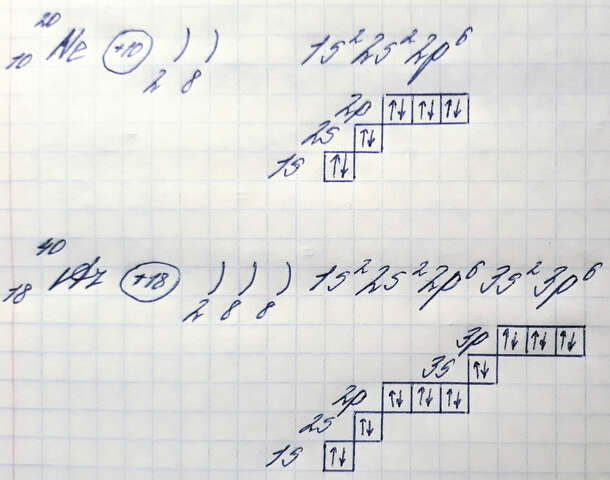 20
10 Ne +10 ) ) 1s² 2s² 2p⁶
2 8
2p ↑↓ ↑↓ ↑↓
2s ↑↓
1s ↑↓
40
18 Ar +18 ) ) ) 1s² 2s² 2p⁶ 3s² 3p⁶
2 8 8
3p ↑↓ ↑↓ ↑↓
3s ↑↓
2p ↑↓ ↑↓ ↑↓
2s ↑↓
1s ↑↓